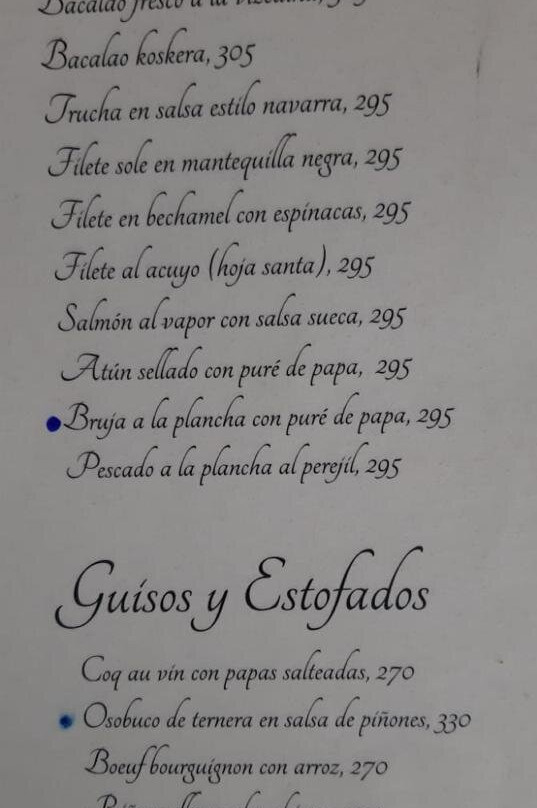 Bacalao fresco a la vizcaína, 305
Bacalao koskera, 305
Trucha en salsa estilo navarra, 295
Filete sole en mantequilla negra, 295
Filete en bechamel con espínacas, 295
Filete al acuyo (hoja santa), 295
Salmón al vapor con salsa sueca, 295
Atún sellado con puré de papa, 295
Bruja a la plancha con puré de papa, 295
Pescado a la plancha al perejil, 295
Guisos y Estofados
Coq au vin con papas salteadas, 270
Osobuco de ternera en salsa de piñones, 330
Boeuf bourguignon con arroz, 270